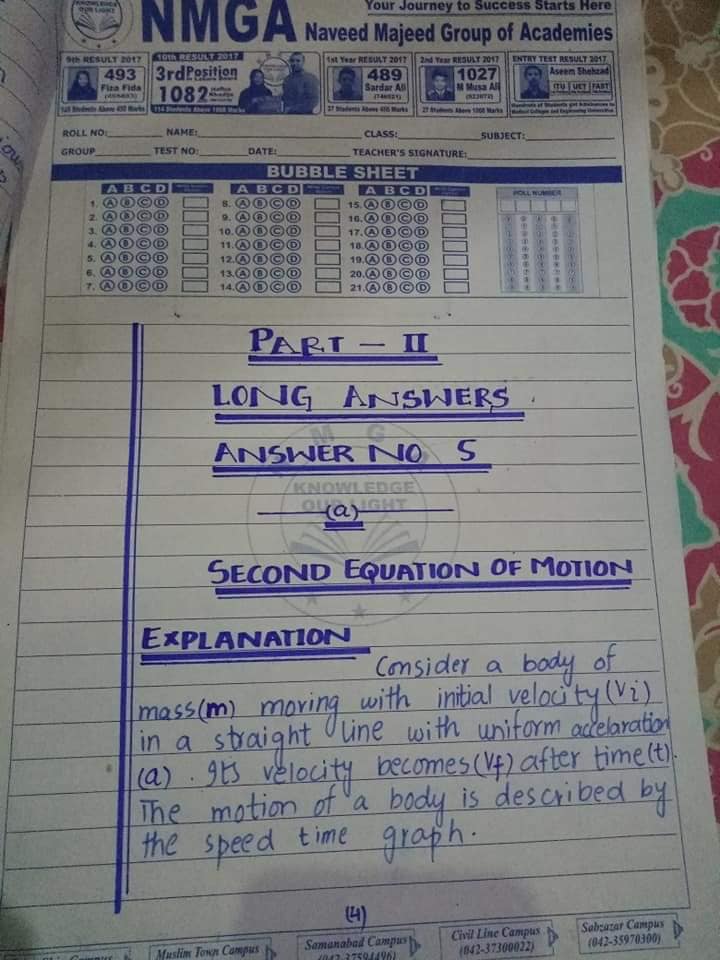 KNOWLEDGE
OUR LIGHT
NMGA
Your Journey to Success Starts Here
Naveed Majeed Group of Academies
9th RESULT 2017
493
Fiza Fida
10th RESULT 2017
3rd Position
1082
1st Year RESULT 2017
489
Sardar Ali
2nd Year RESULT 2017
1027
M Musa Ali
ENTRY TEST RESULT 2017
Aseem Shehzad
ITU UET FAST
ROLL NO: NAME: CLASS: SUBJECT:
GROUP TEST NO: DATE: TEACHER'S SIGNATURE:
BUBBLE SHEET
A B C D A B C D A B C D
ROLL NUMBER
1. A B C D 8. A B C D 15. A B C D
2. A B C D 9. A B C D 16. A B C D
3. A B C D 10. A B C D 17. A B C D
4. A B C D 11. A B C D 18. A B C D
5. A B C D 12. A B C D 19. A B C D
6. A B C D 13. A B C D 20. A B C D
7. A B C D 14. A B C D 21. A B C D
PART - II
LONG ANSWERS
M G
ANSWER NO 5
KNOWLEDGE
OUR LIGHT
(a)
SECOND EQUATION OF MOTION
EXPLANATION
Consider a body of
mass(m) moving with initial velocity(Vi)
in a straight line with uniform accelaration
(a). Its velocity becomes(Vf) after time(t).
The motion of a body is described by
the speed time graph.
(4)
Campus
Muslim Town Campus
Samanabad Campus
(042-37594496)
Civil Line Campus
(042-37300022)
Sabzazar Campus
(042-35970300)